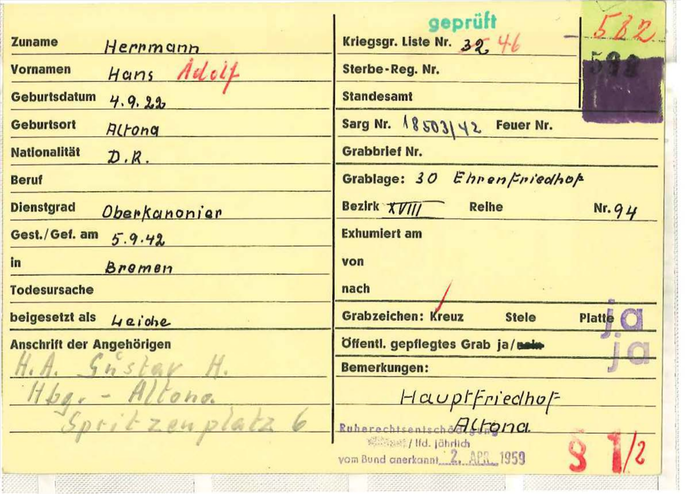 geprüft
582
Zuname Herrmann
Vornamen Hans Adolf
Geburtsdatum 4.9.22
Geburtsort Altona
Nationalität D.R.
Beruf
Dienstgrad Oberkanonier
Gest./Gef. am 5.9.42
in Bremen
Todesursache
beigesetzt als Leiche
Anschrift der Angehörigen
H.A. Gustav H.
Hbg. - Altona.
Spritzenplatz 6
Kriegsgr. Liste Nr. 32 46
Sterbe-Reg. Nr.
Standesamt
Sarg Nr. 18503/42 Feuer Nr.
Grabbrief Nr.
Grablage: 30 Ehrenfriedhof
Bezirk XVIII Reihe Nr. 94
Exhumiert am
von
nach
Grabzeichen: Kreuz Stele Platte ja
Öffentl. gepflegtes Grab ja/nein ja
Bemerkungen:
Hauptfriedhof
Altona
Ruherechtsentschädigung
/ lfd. jährlich
vom Bund anerkannt 2. APR. 1959
§ 1/2